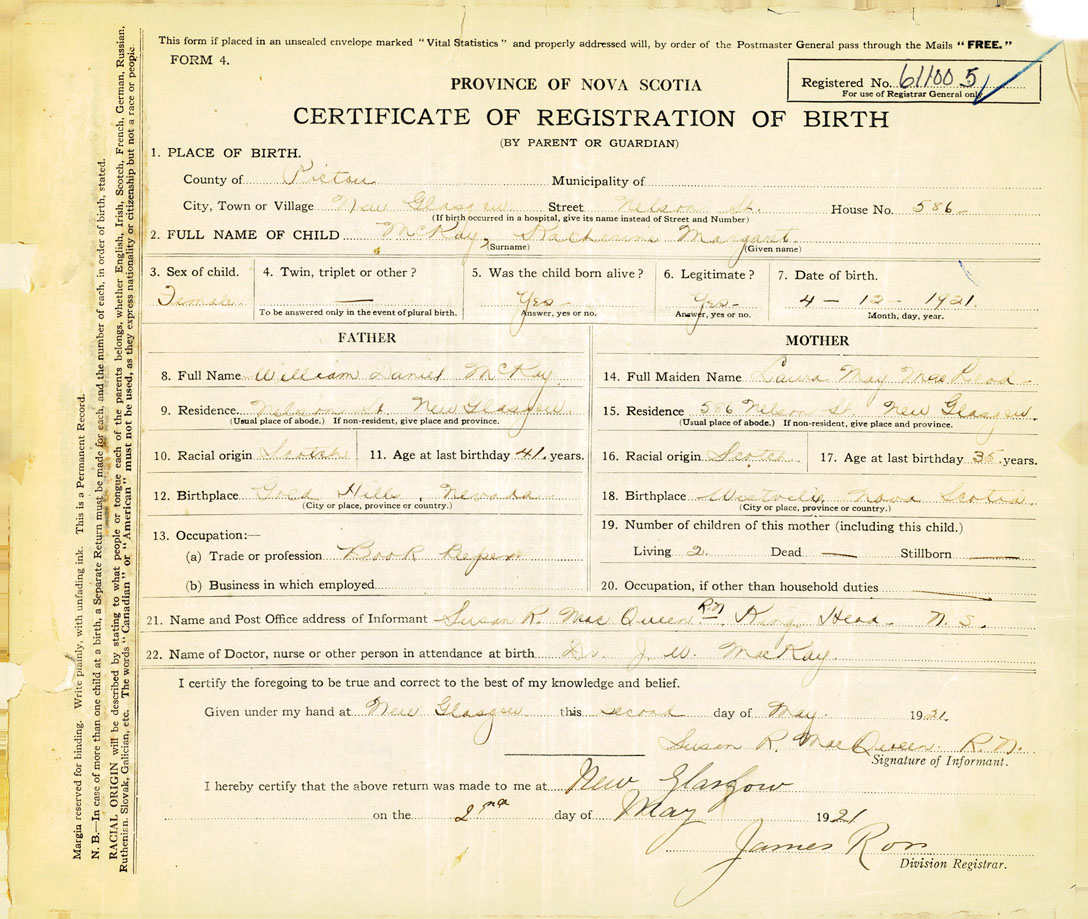 This form if placed in an unsealed envelope marked "Vital Statistics" and properly addressed will, by order of the Postmaster General pass through the Mails "FREE."
FORM 4.
Registered No. 611005
For use of Registrar General only
PROVINCE OF NOVA SCOTIA
CERTIFICATE OF REGISTRATION OF BIRTH
(BY PARENT OR GUARDIAN)
1. PLACE OF BIRTH.
County of Pictou Municipality of
City, Town or Village New Glasgow Street Nelson St. House No. 586
(If birth occurred in a hospital, give its name instead of Street and Number)
2. FULL NAME OF CHILD McKay, Katherine Margaret
(Surname) (Given name)
3. Sex of child. 4. Twin, triplet or other? 5. Was the child born alive? 6. Legitimate? 7. Date of birth.
Female. — Yes - Yes - 4 - 12 - 1921.
To be answered only in the event of plural birth. Answer, yes or no. Answer, yes or no. Month, day, year.
FATHER MOTHER
8. Full Name William Daniel McKay 14. Full Maiden Name Laura May MacLeod
9. Residence. Nelson st New Glasgow 15. Residence 586 Nelson St. New Glasgow.
(Usual place of abode.) If non-resident, give place and province. (Usual place of abode.) If non-resident, give place and province.
10. Racial origin Scotch 11. Age at last birthday 41. years. 16. Racial origin Scotch 17. Age at last birthday 35 years.
12. Birthplace Gold Hill, Nevada 18. Birthplace Westville, Nova Scotia
(City or place, province or country.) (City or place, province or country.)
13. Occupation:— 19. Number of children of this mother (including this child.)
(a) Trade or profession Book Keeper Living 2. Dead — Stillborn —
(b) Business in which employed 20. Occupation, if other than household duties —
21. Name and Post Office address of Informant Susan R. MacQueen RN Head N.S.
22. Name of Doctor, nurse or other person in attendance at birth Dr. J. W. MacKay.
I certify the foregoing to be true and correct to the best of my knowledge and belief.
Given under my hand at New Glasgow this second day of May. 1921.
Susan R. MacQueen R.N.
Signature of Informant.
I hereby certify that the above return was made to me at New Glasgow
on the 2nd day of May 1921
James Ross
Division Registrar.
Margin reserved for binding. Write plainly, with unfading ink. This is a Permanent Record.
N. B.—In case of more than one child at a birth, a Separate Return must be made for each, and the number of each, in order of birth, stated.
RACIAL ORIGIN will be described by stating to what people or tongue each of the parents belongs, whether English, Irish, Scotch, French, German, Russian,
Ruthenian, Slovak, Galician, etc. The words "Canadian" or "American" must not be used, as they express nationality or citizenship but not a race or people.